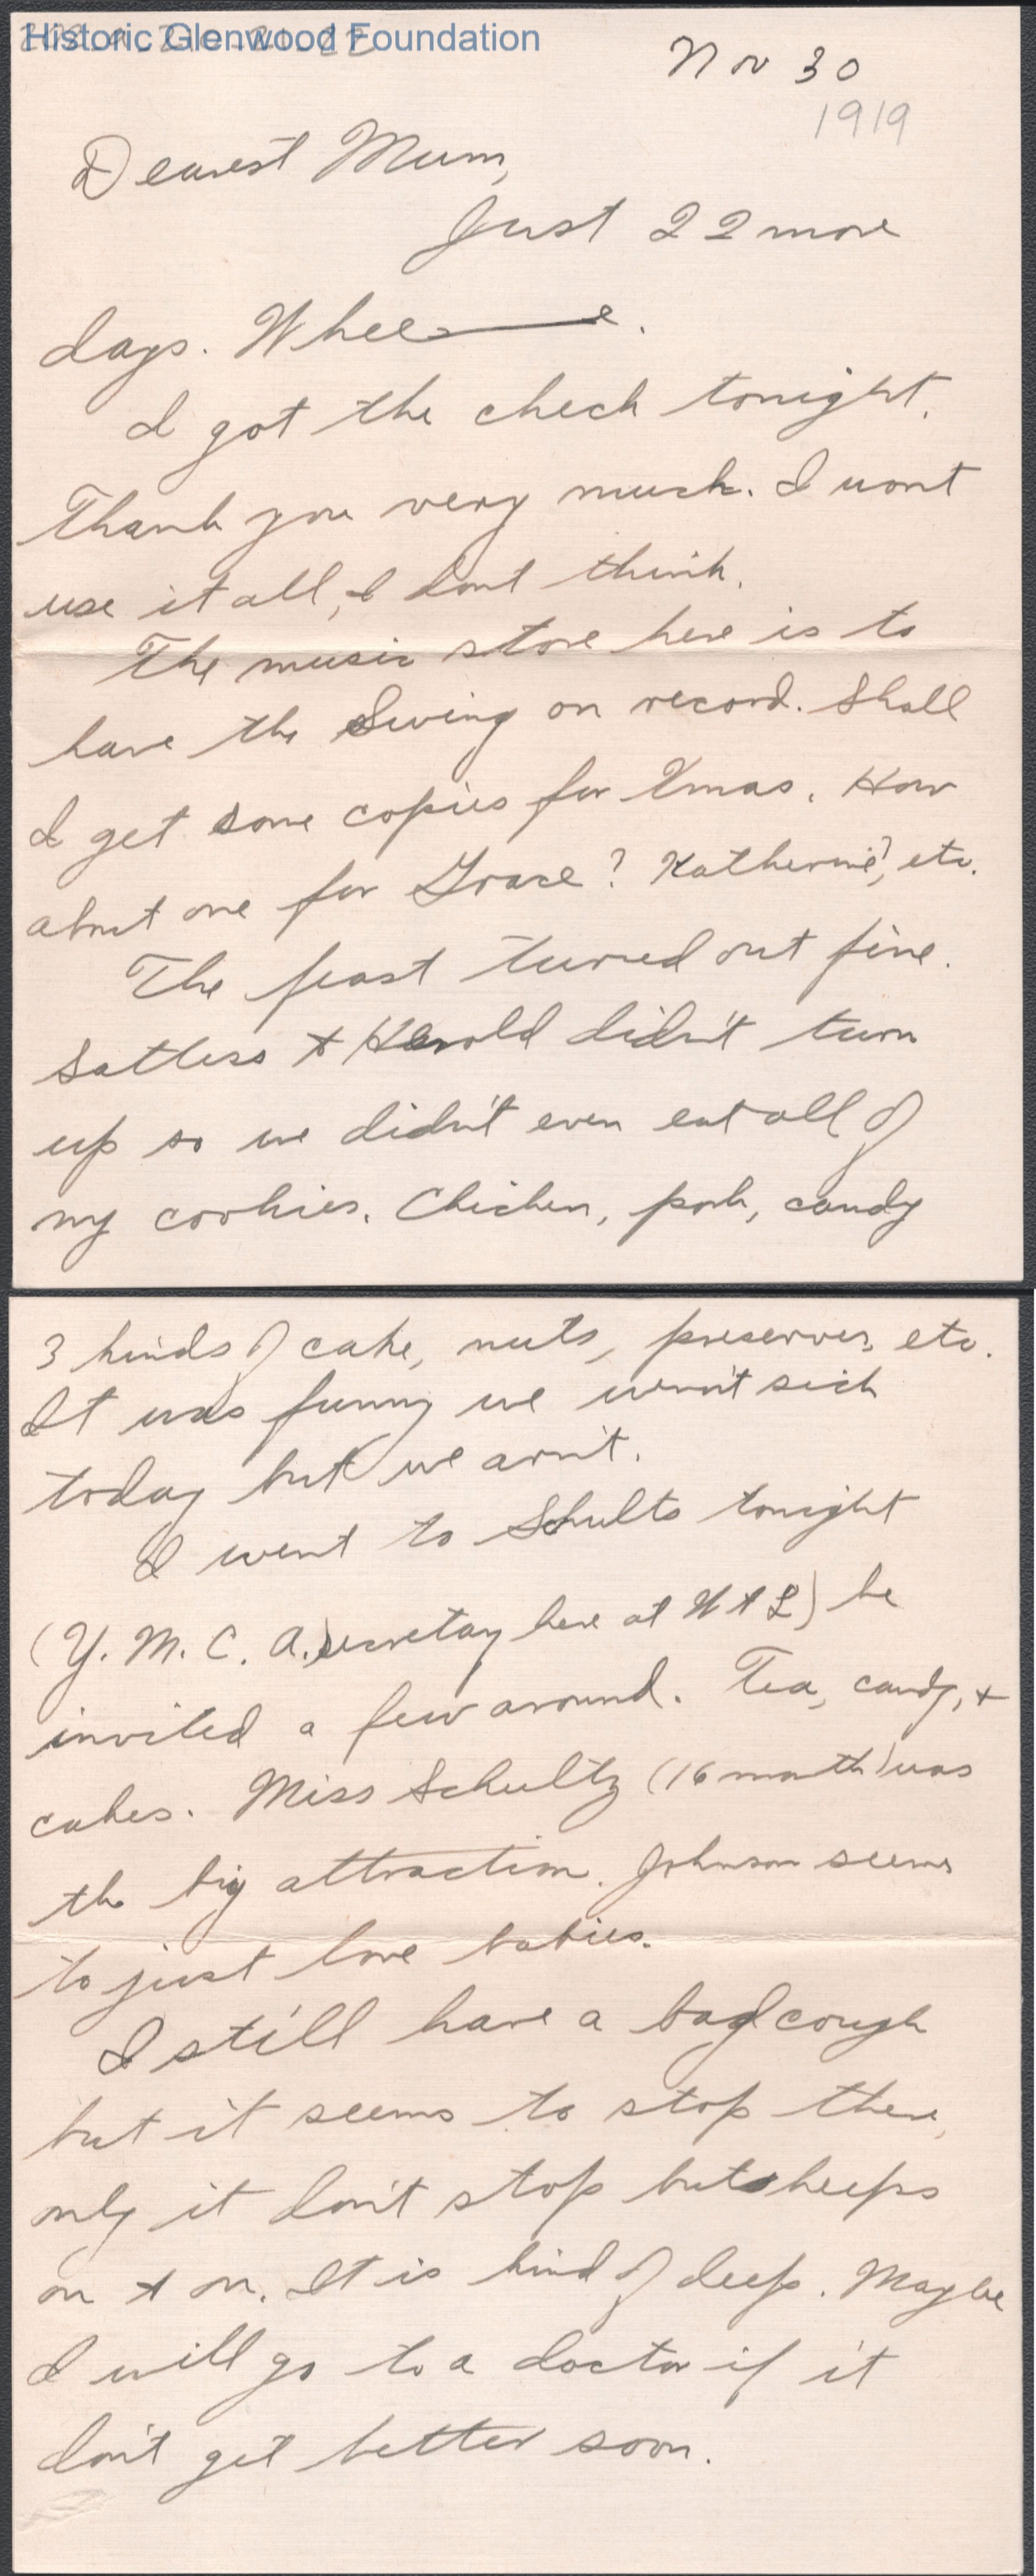 Historic Glenwood Foundation
Nov 30
1919
Dearest Mum,
Just 22 more
days. Wheee.
I got the check tonight.
Thank you very much. I wont
use it all, I dont think.
The music store here is to
have the Swing on record. Shall
I get some copies for Xmas. How
about one for Grace? Katherine?, etc.
The feast turned out fine.
Satless & Harold didn't turn
up so we didn't even eat all of
my cookies. Chicken, pork, candy
3 kinds of cake, nuts, preserves, etc.
It was funny we weren't sick
today but we arn't.
I went to Shults tonight
(Y. M. C. A. secretary here at W & L) he
invited a few around. Tea, candy, &
cakes. Miss Schultz (16 month) was
the big attraction. Johnson seems
to just love babies.
I still have a bad cough
but it seems to stop there,
only it don't stop but keeps
on & on. It is kind of deep. Maybe
I will go to a doctor if it
don't get better soon.